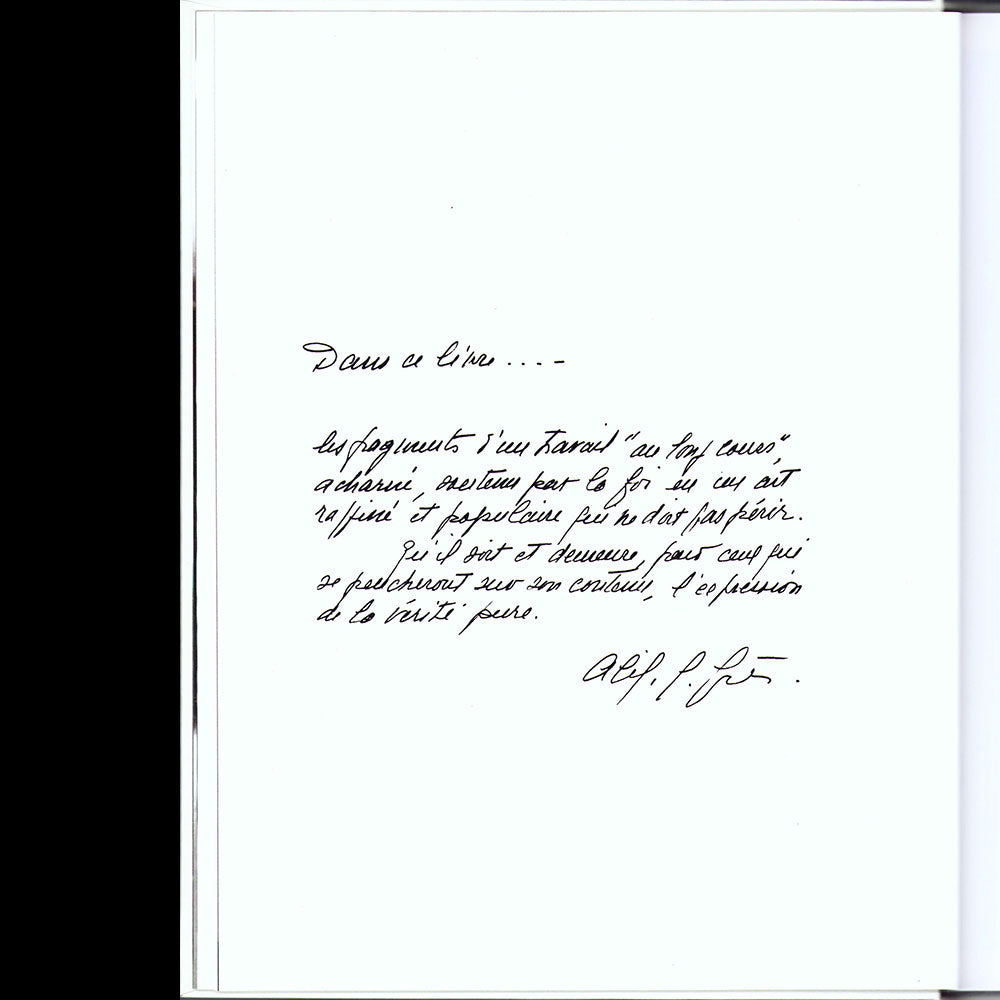 Dans ce livre . . . . -
les fragments d'un travail "au long cours",
acharné, soutenu par la foi en un art
raffiné et populaire qui ne doit pas périr.
Qu'il soit et demeure, pour ceux qui
se pencheront sur son contenu, l'expression
de la vérité pure.